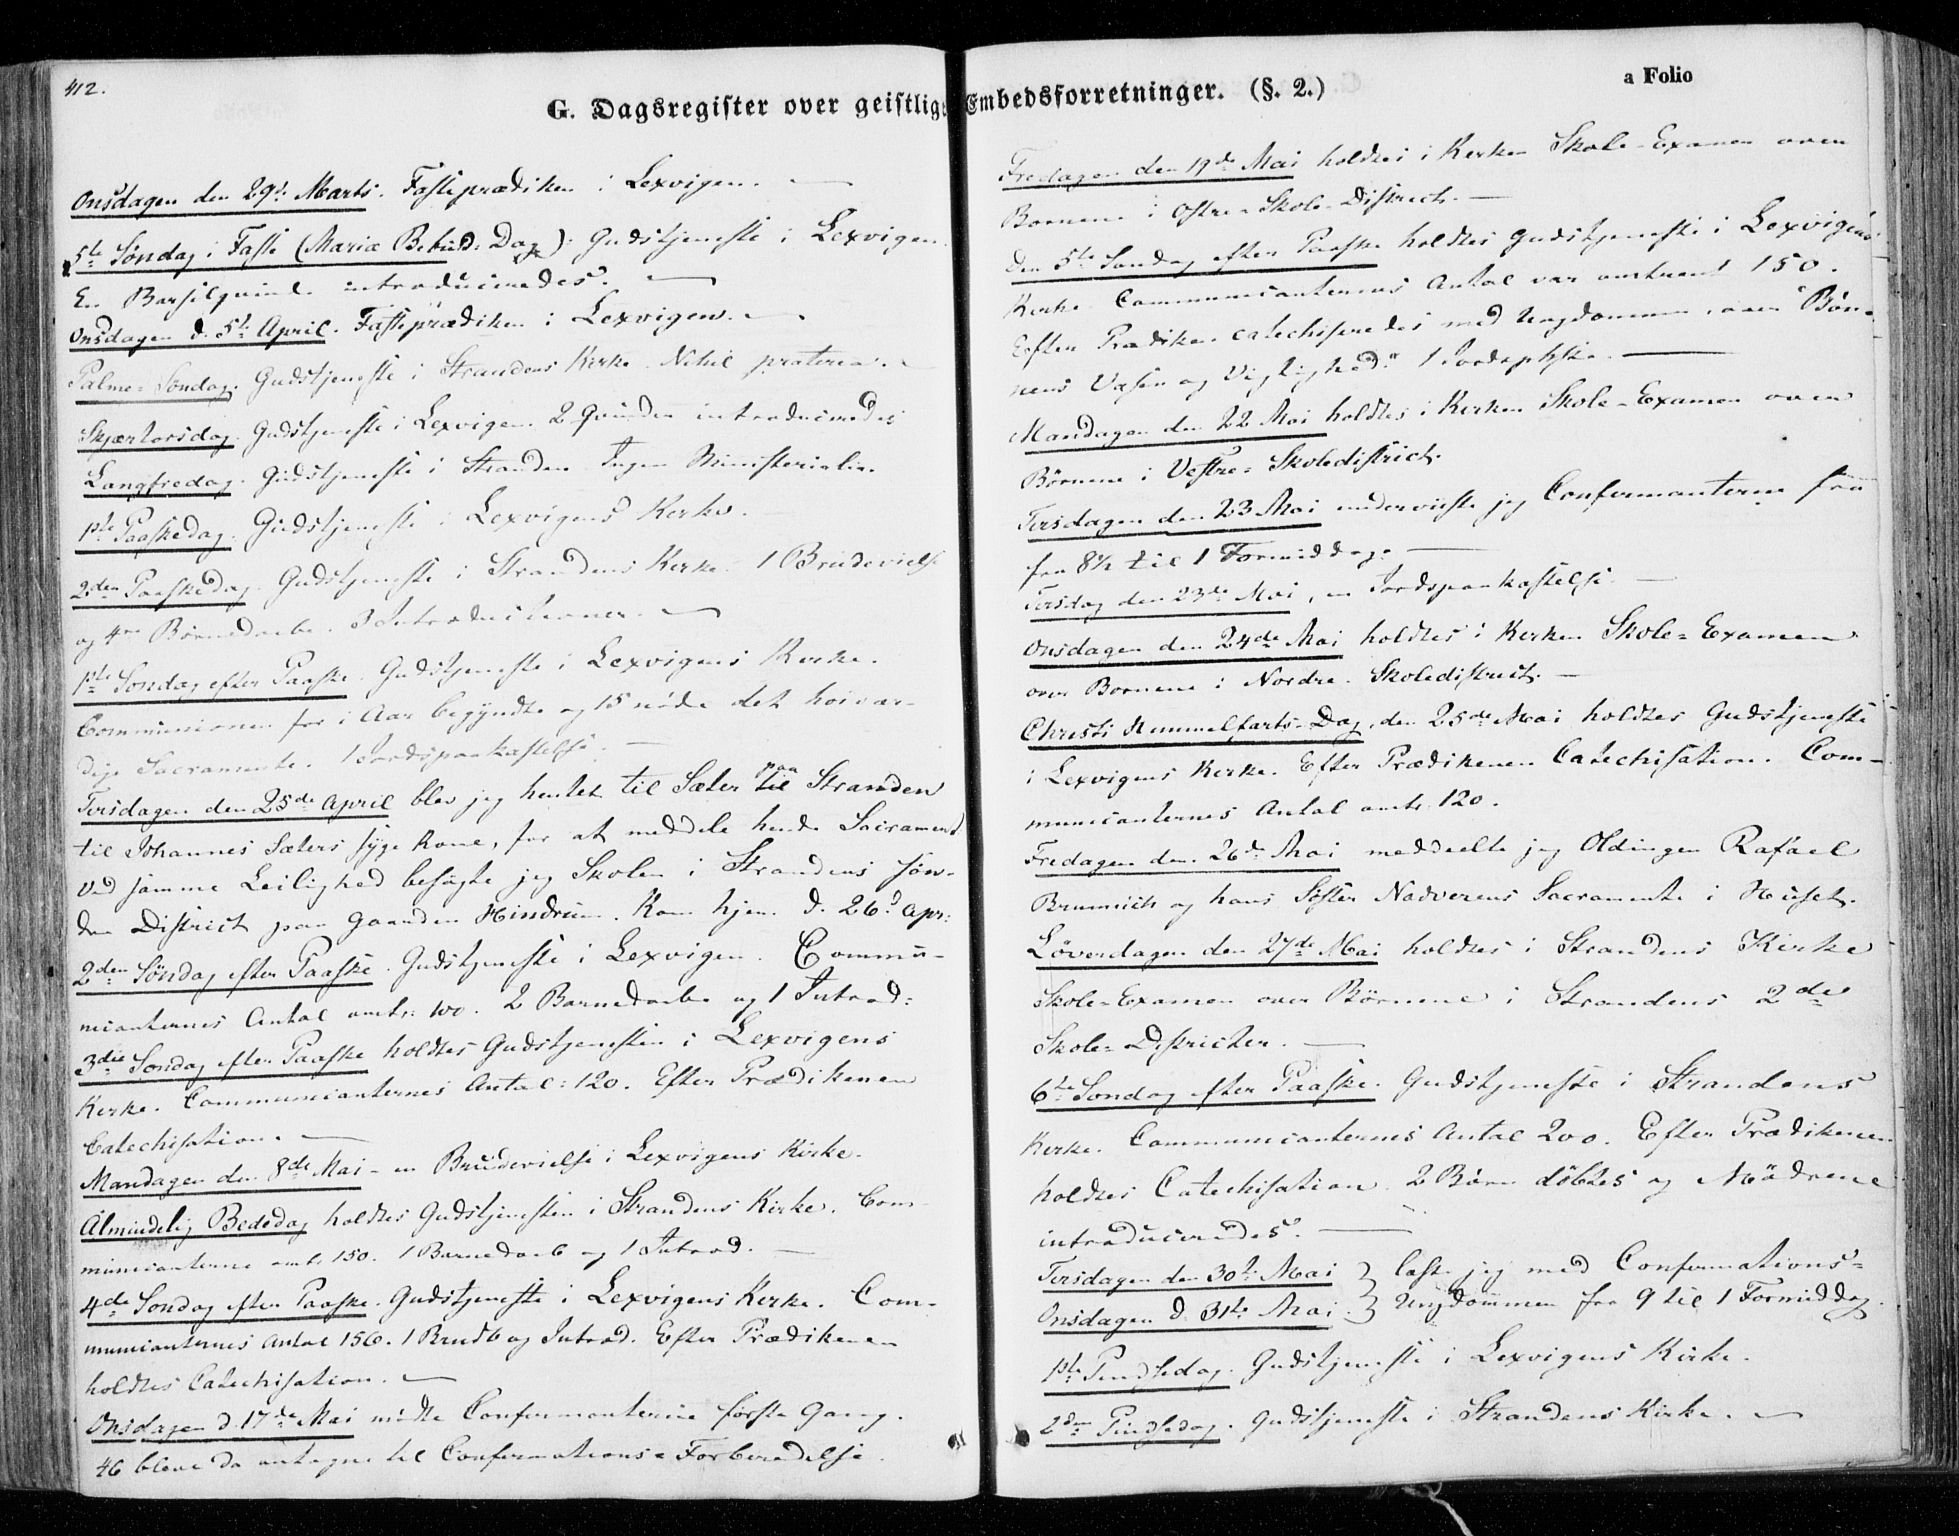 412.
G. Dagsregister over geistlige Embedsforretninger. (§. 2.)
a Folio
Onsdagen den 29de Marts. Fasteprædiken i Lexvigen.
5te Søndag i Faste (Mariæ Bebud: Dag): Gudstjeneste i Lexvigen.
En Barselqvinde introduceredes.
Onsdagen d. 5te April. Fasteprædiken i Lexvigen.
Palme-Søndag. Gudstjeneste i Strandens Kirke. Nihil præterea.
Skjærtorsdag. Gudstjeneste i Lexvigen. 2 Qvinder introduceredes
Langfredag. Gudstjeneste i Stranden. Ingen Ministerialia.
1ste Paaskedag. Gudstjeneste i Lexvigens Kirke.
2den Paaskedag. Gudstjeneste i Strandens Kirke. 1 Brudevielse
og 4re Børnedaabe. 3 Introductioner.
1ste Søndag efter Paaske. Gudstjeneste i Lexvigens Kirke.
Communionen for i Aar begyndte og 15 nøde det høiær-
dige Sacramente. 1 Jordspaakastelse.
Tirsdagen den 25de April blev jeg hentet til Sæter paa til Stranden
til Johannes Sæters syge Kone, for at meddele hende Sacrament
Ved samme Leilighed besøgte jeg Skolen i Strandens søn-
dre District paa Gaarden Hindrum. Kom hjem d. 26d Apr:
2den Søndag efter Paaske. Gudstjeneste i Lexvigen. Commu-
nicanternes Antal omtr: 100. 2 Barnedaabe og 1 Introd:
3die Søndag efter Paaske holdtes Gudstjenesten i Lexvigens
Kirke. Communicanternes Antal: 120. Efter Prædikenen
Catechisation.
Mandagen den 8de Mai - en Brudevielse i Lexvigens Kirke.
Almindelig Bededag holdtes Gudstjenesten i Strandens Kirke. Com-
municanterne omtr 150. 1 Barnedaab og 1 Introd.
4de Søndag efter Paaske. Gudstjeneste i Lexvigens Kirke. Com-
municanternes Antal 156. 1 og Introd. Efter Prædikenen
holdtes Catechisation.
Onsdagen d. 17de Mai mødte Confirmanterne første Gang.
46 bleve da antagne til Confirmations-Forberedelse.
Fredagen den 19de Mai holdtes i Kirken Skole-Examen over
Børnene i Østre-Skole-District.
Den 5te Søndag efter Paaske holdtes Gudstjeneste i Lexvigens
Kirke. Communicanternes Antal var omtrent 150.
Efter Prædiken catechiseredes med Ungdommen, over "Bøn-
nens Væsen og Vigtighed." 1 Jordspaak.
Mandagen den 22 Mai holdtes i Kirken Skole-Examen over
Børnene i Vestre-Skoledistrict.
Tirsdagen den 23 Mai underviste jeg Confirmanterne fra
fra 8½ til 1 Formiddag.
Tirsdag den 23de Mai, en Jordspaakastelse.
Onsdagen den 24de Mai holdtes i Kirken Skole-Examen
over Børnene i Nordre-Skoledistrict.
Christi Himmelfarts-Dag, den 25de Mai holdtes Gudstjeneste
i Lexvigens Kirke. Efter Prædikenen Catechisation. Com-
municanternes Antal omtr. 120.
Fredagen den 26de Mai meddeelte jeg Oldingen Rafael
Brunnich og hans Søster Nadverens Sacramente i Huset.
Løverdagen den 27de Mai holdtes i Strandens Kirke
Skole-Examen over Børnene i Strandens 2de
Skole-Districter.
6te Søndag efter Paaske. Gudstjeneste i Strandens
Kirke. Communicanternes Antal 200. Efter Prædikenen
holdtes Catechisation. 2 Børn döbtes og Mödrene
introduceredes.
Tirsdagen den 30te Mai } læste jeg med Confirmations-
Onsdagen d. 31te Mai } Ungdommen fra 9 til 1 Formiddag.
1ste Pindsedag. Gudstjeneste i Lexvigens Kirke.
2den Pindsedag. Gudstjeneste i Strandens Kirke.